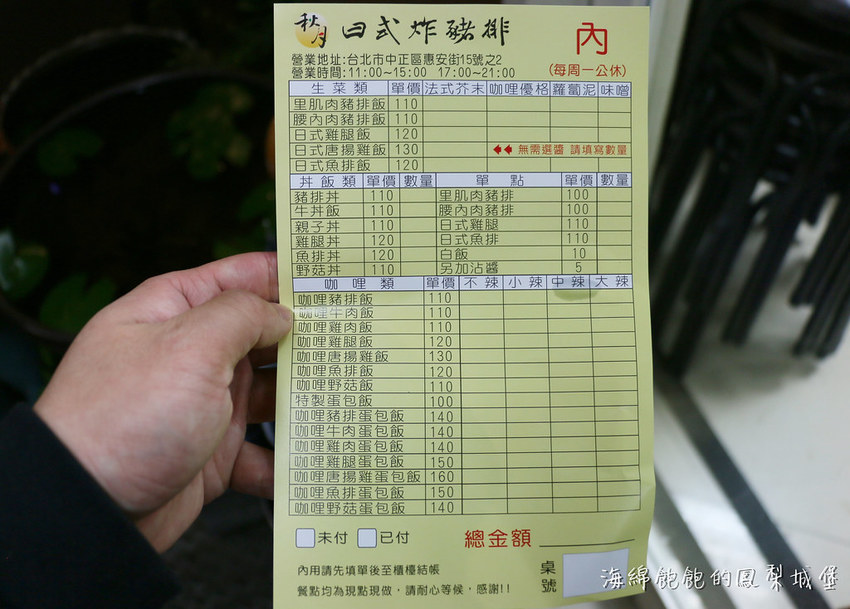 秋月 日式炸豬排
內
營業地址:台北市中正區惠安街15號之2
營業時間:11:00~15:00 17:00~21:00
(每周一公休)
生菜類 單價 法式芥末 咖哩優格 蘿蔔泥 味噌
里肌肉豬排飯 110
腰內肉豬排飯 110
日式雞腿飯 120
日式唐揚雞飯 130 無需選醬 請填寫數量
日式魚排飯 120
丼飯類 單價 數量 單點 單價 數量
豬排丼 110 里肌肉豬排 100
牛丼飯 110 腰內肉豬排 100
親子丼 110 日式雞腿 110
雞腿丼 120 日式魚排 110
魚排丼 120 白飯 10
野菇丼 110 另加沾醬 5
咖哩類 單價 不辣 小辣 中辣 大辣
咖哩豬排飯 110
咖哩牛肉飯 110
咖哩雞肉飯 110
咖哩雞腿飯 120
咖哩唐揚雞飯 130
咖哩魚排飯 120
咖哩野菇飯 110
特製蛋包飯 100
咖哩豬排蛋包飯 140
咖哩牛肉蛋包飯 140
咖哩雞肉蛋包飯 140
咖哩雞腿蛋包飯 150
咖哩唐揚雞蛋包飯 160
咖哩魚排蛋包飯 150
咖哩野菇蛋包飯 140
未付 已付 總金額
內用請先填單後至櫃檯結帳
餐點均為現點現做，請耐心等候，感謝!!
桌號
海綿飽飽的鳳梨城堡